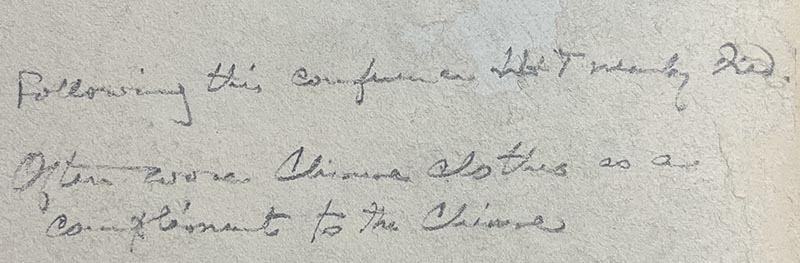 Following this conference HHT nearly died.
Often wore Chinese clothes as a
compliment to the Chinese